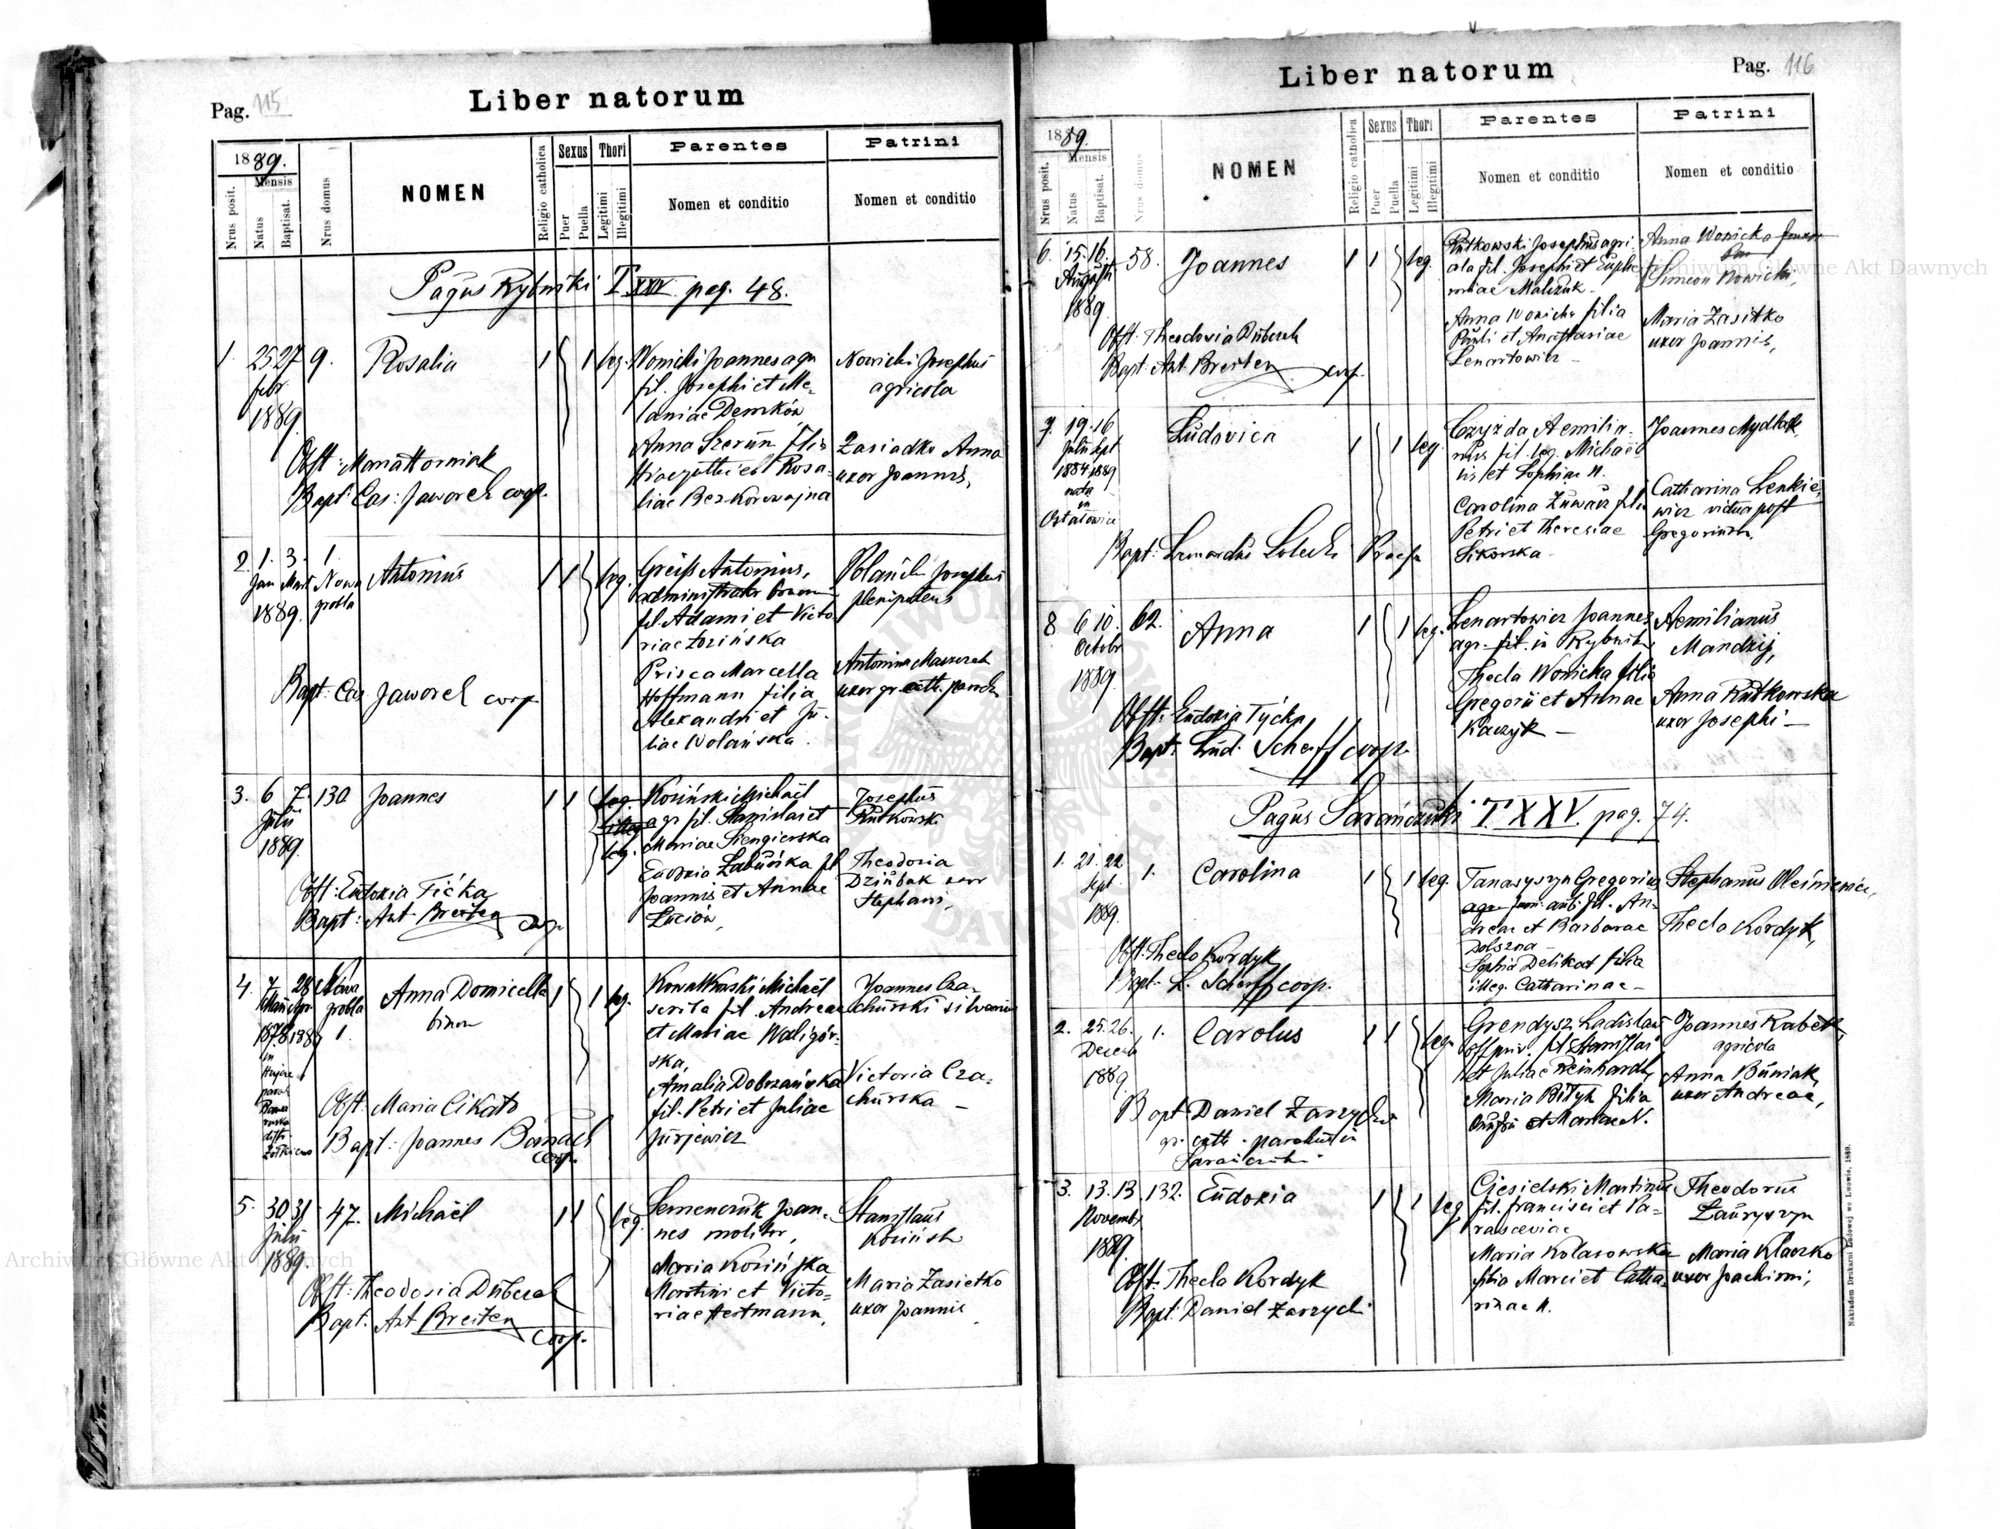 Pag. 115
Liber natorum
1889.
Mensis
Nrus posit.
Natus
Baptisat.
Nrus domus
NOMEN
Religio catholica
Sexus
Puer
Puella
Thori
Legitimi
Illegitimi
Parentes
Nomen et conditio
Patrini
Nomen et conditio
Pagus Rybniki T XXV. pag. 48.
1. 25 27 9. Rosalia 1 1 leg.
febr
1889
Wonicki Joannes agr
fil. Josephi et Me-
laniae Demków
Anna Szerün filia
Hiacynthi et Rosa-
liae Bezkorowajna
Nowicki Josephus
agricola
Zasiadko Anna
uxor Joannis,
Obst: Maria
Bapt: Cas: Jaworek coop.
2. 1. 3. 1. Antonius 1 1 leg.
Jan Mart Nowa
1889. grobla
Greiss Antonius,
administrator
fil. Adami et Victo
riae Łozińska
Prisca Marcella
Hoffmann filia
Alexandri et Ju-
liae Wolańska.
Josephus
plenipotens
Antonina
uxor gr. cath. paroch
Bapt: Cas Jaworek coop
3. 6 7. 130 Joannes 1 1 leg.
Julii
1889.
illeg
leg.
Kosiński Michaël
agr fil. Stanislai et
Mariae Siengierska
Eudoxia Łabuńka fil
Joannis et Annae
Łuciów,
Josephus
Rutkowski
Theodoria
Dziubak uxor
Stephani,
Obst: Eudoxia Tićka
Bapt: Ant Breiten coop
4. 7 28 Nowa Anna Domicella 1 1 leg.
grobla binom
1878 1889 1.
in
Kowalkowski Michaël
scriba fil. Andreae
et Mariae Waligór-
ska,
Amalia Dobrzańska
fil. Petri et Juliae
Jurjewicz
Joannes Cza-
churski silvanus
Victoria Cza-
churska –
Obst: Maria Cikato
Bapt: Joannes Banach
coop.
5. 30 31 47. Michaël 1 1 leg.
Julii
1889.
Semenczuk Joan-
nes molitor,
Maria Kosińska
Martini et Victo-
riae Hertmann,
Stanislaus
Kosiński
Maria Zasietko
uxor Joannis
Obst: Theodosia Dubczak
Bapt: Ant Breiten
coop.
Pag. 116
Liber natorum
1889.
Mensis
Nrus posit.
Natus
Baptisat.
Nrus domus
NOMEN
Religio catholica
Sexus
Puer
Puella
Thori
Legitimi
Illegitimi
Parentes
Nomen et conditio
Patrini
Nomen et conditio
6. 15. 16. 58. Joannes 1 1 leg.
Augusti
1889
Rutkowski Josephus agri-
cola fil. Josephi et Euphe
miae Malczuk –
Anna Wonicka filia
Pauli et Anastasiae
Lenartowicz –
Anna Wonicka
Simeon Nowicki,
Maria Zasitko
uxor Joannis,
Obst: Theodosia Dubczak
Bapt: Ant Breiten coop.
7. 19. 16 Ludovica 1 1 leg.
Julii Sept
1884 1889
nata
in
Ostałowice
Czyżda Aemilia-
nus fil. leg. Michaë
lis et Sophiae N.
Carolina Zuwacz filia
Petri et Theresiae
Sikorska –
Joannes Mydlak,
Catharina Lenkie-
wicz vidua post
Gregorium,
Bapt:
8 6 10. 62. Anna 1 1 leg.
Octobr
1889.
Lenartowicz Joannes
agr. fil. in Rybniki
Thecla Wonicka filia
Gregorii et Annae
Kaczyk –
Aemilianus
Mandzij,
Anna Rutkowska
uxor Josephi –
Obst: Eudoxia Tyćka
Bapt: Lud: Scherff coop.
Pagus Sarańczuki T. XXV. pag. 74.
1. 21. 22. 1. Carolina 1 1 leg.
Sept
1889.
Tanasyszyn Gregorius
agr. fil. An-
dreae et Barbarae
Dolszna –
Sophia Delikat filia
illeg. Catharinae –
Stephanus Oleśniewicz,
Thecla Kordyk,
Obst: Thecla Kordyk
Bapt: L. Scherff coop.
2. 25. 26. 1. Carolus 1 1 leg.
Decemb
1889
Grendysz Ladislaus
off priv. fil. Stanislai
et Juliae Reinhardt,
Maria Bityk filia
et Mariae N.
Joannes Rabek,
agricola
Anna Buniak,
uxor Andreae,
Bapt Daniel Zarzycki
gr. cath. parochus in
Sarańczuki
3. 13. 13. 132. Eudoxia 1 1 leg
Novemb
1889.
Ciesielski Martinus
fil. Francisci et Pa-
rasceviae
Maria Kolasowska
filia Marci et Catha
rinae N.
Theodorus
Łauryszyn
Maria Klaczko
uxor Joachimi,
Obst: Thecla Kordyk
Bapt: Daniel Zarzycki
Nakładem Drukarni Ludowej we Lwowie, 1889.
Archiwum Główne Akt Dawnych
Archiwum Główne Akt Dawnych